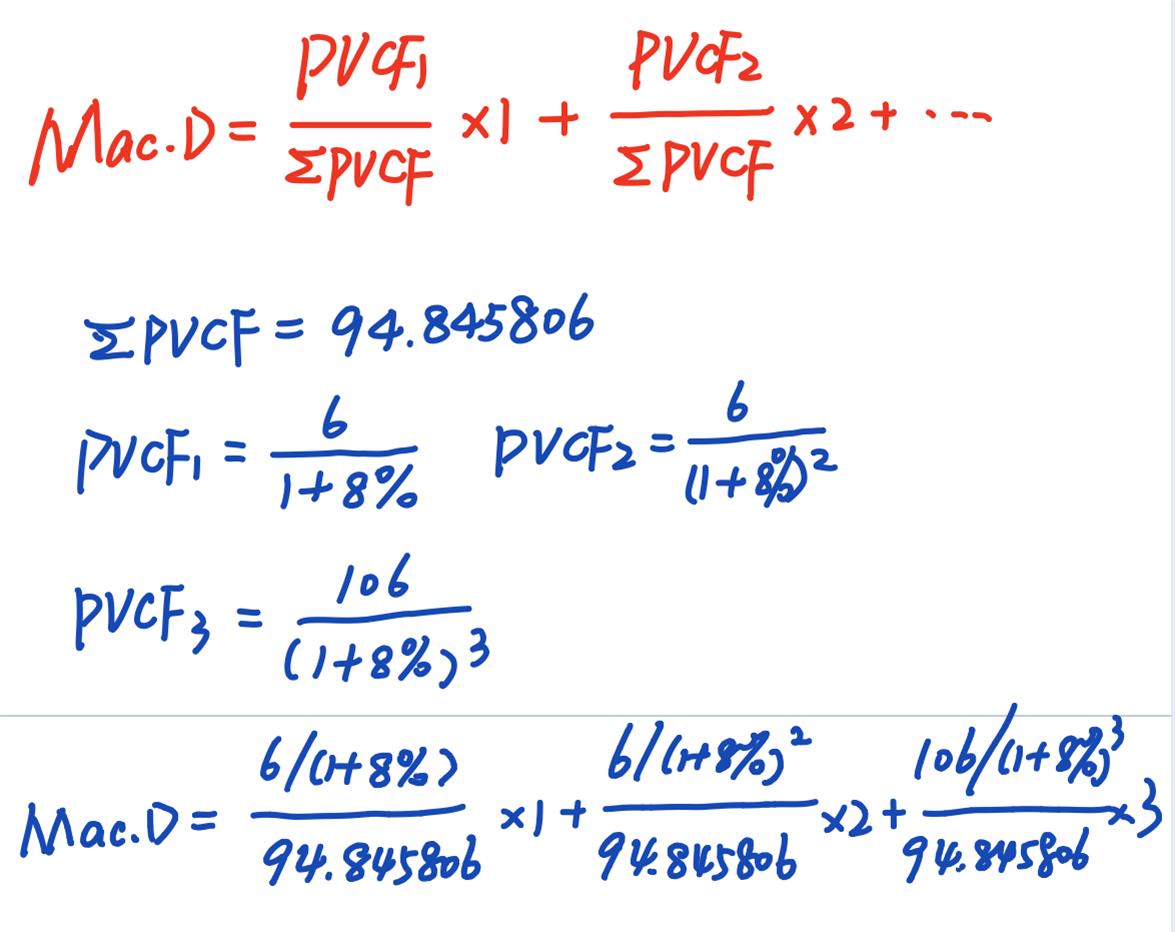 Mac.D = PVCF₁/ΣPVCF ×1 + PVCF₂/ΣPVCF ×2 + ...
ΣPVCF = 94.845806
PVCF₁ = 6/1+8% PVCF₂ = 6/(1+8%)²
PVCF₃ = 106/(1+8%)³
Mac.D = 6/(1+8%)/94.845806 ×1 + 6/(1+8%)²/94.845806 ×2 + 106/(1+8%)³/94.845806 ×3